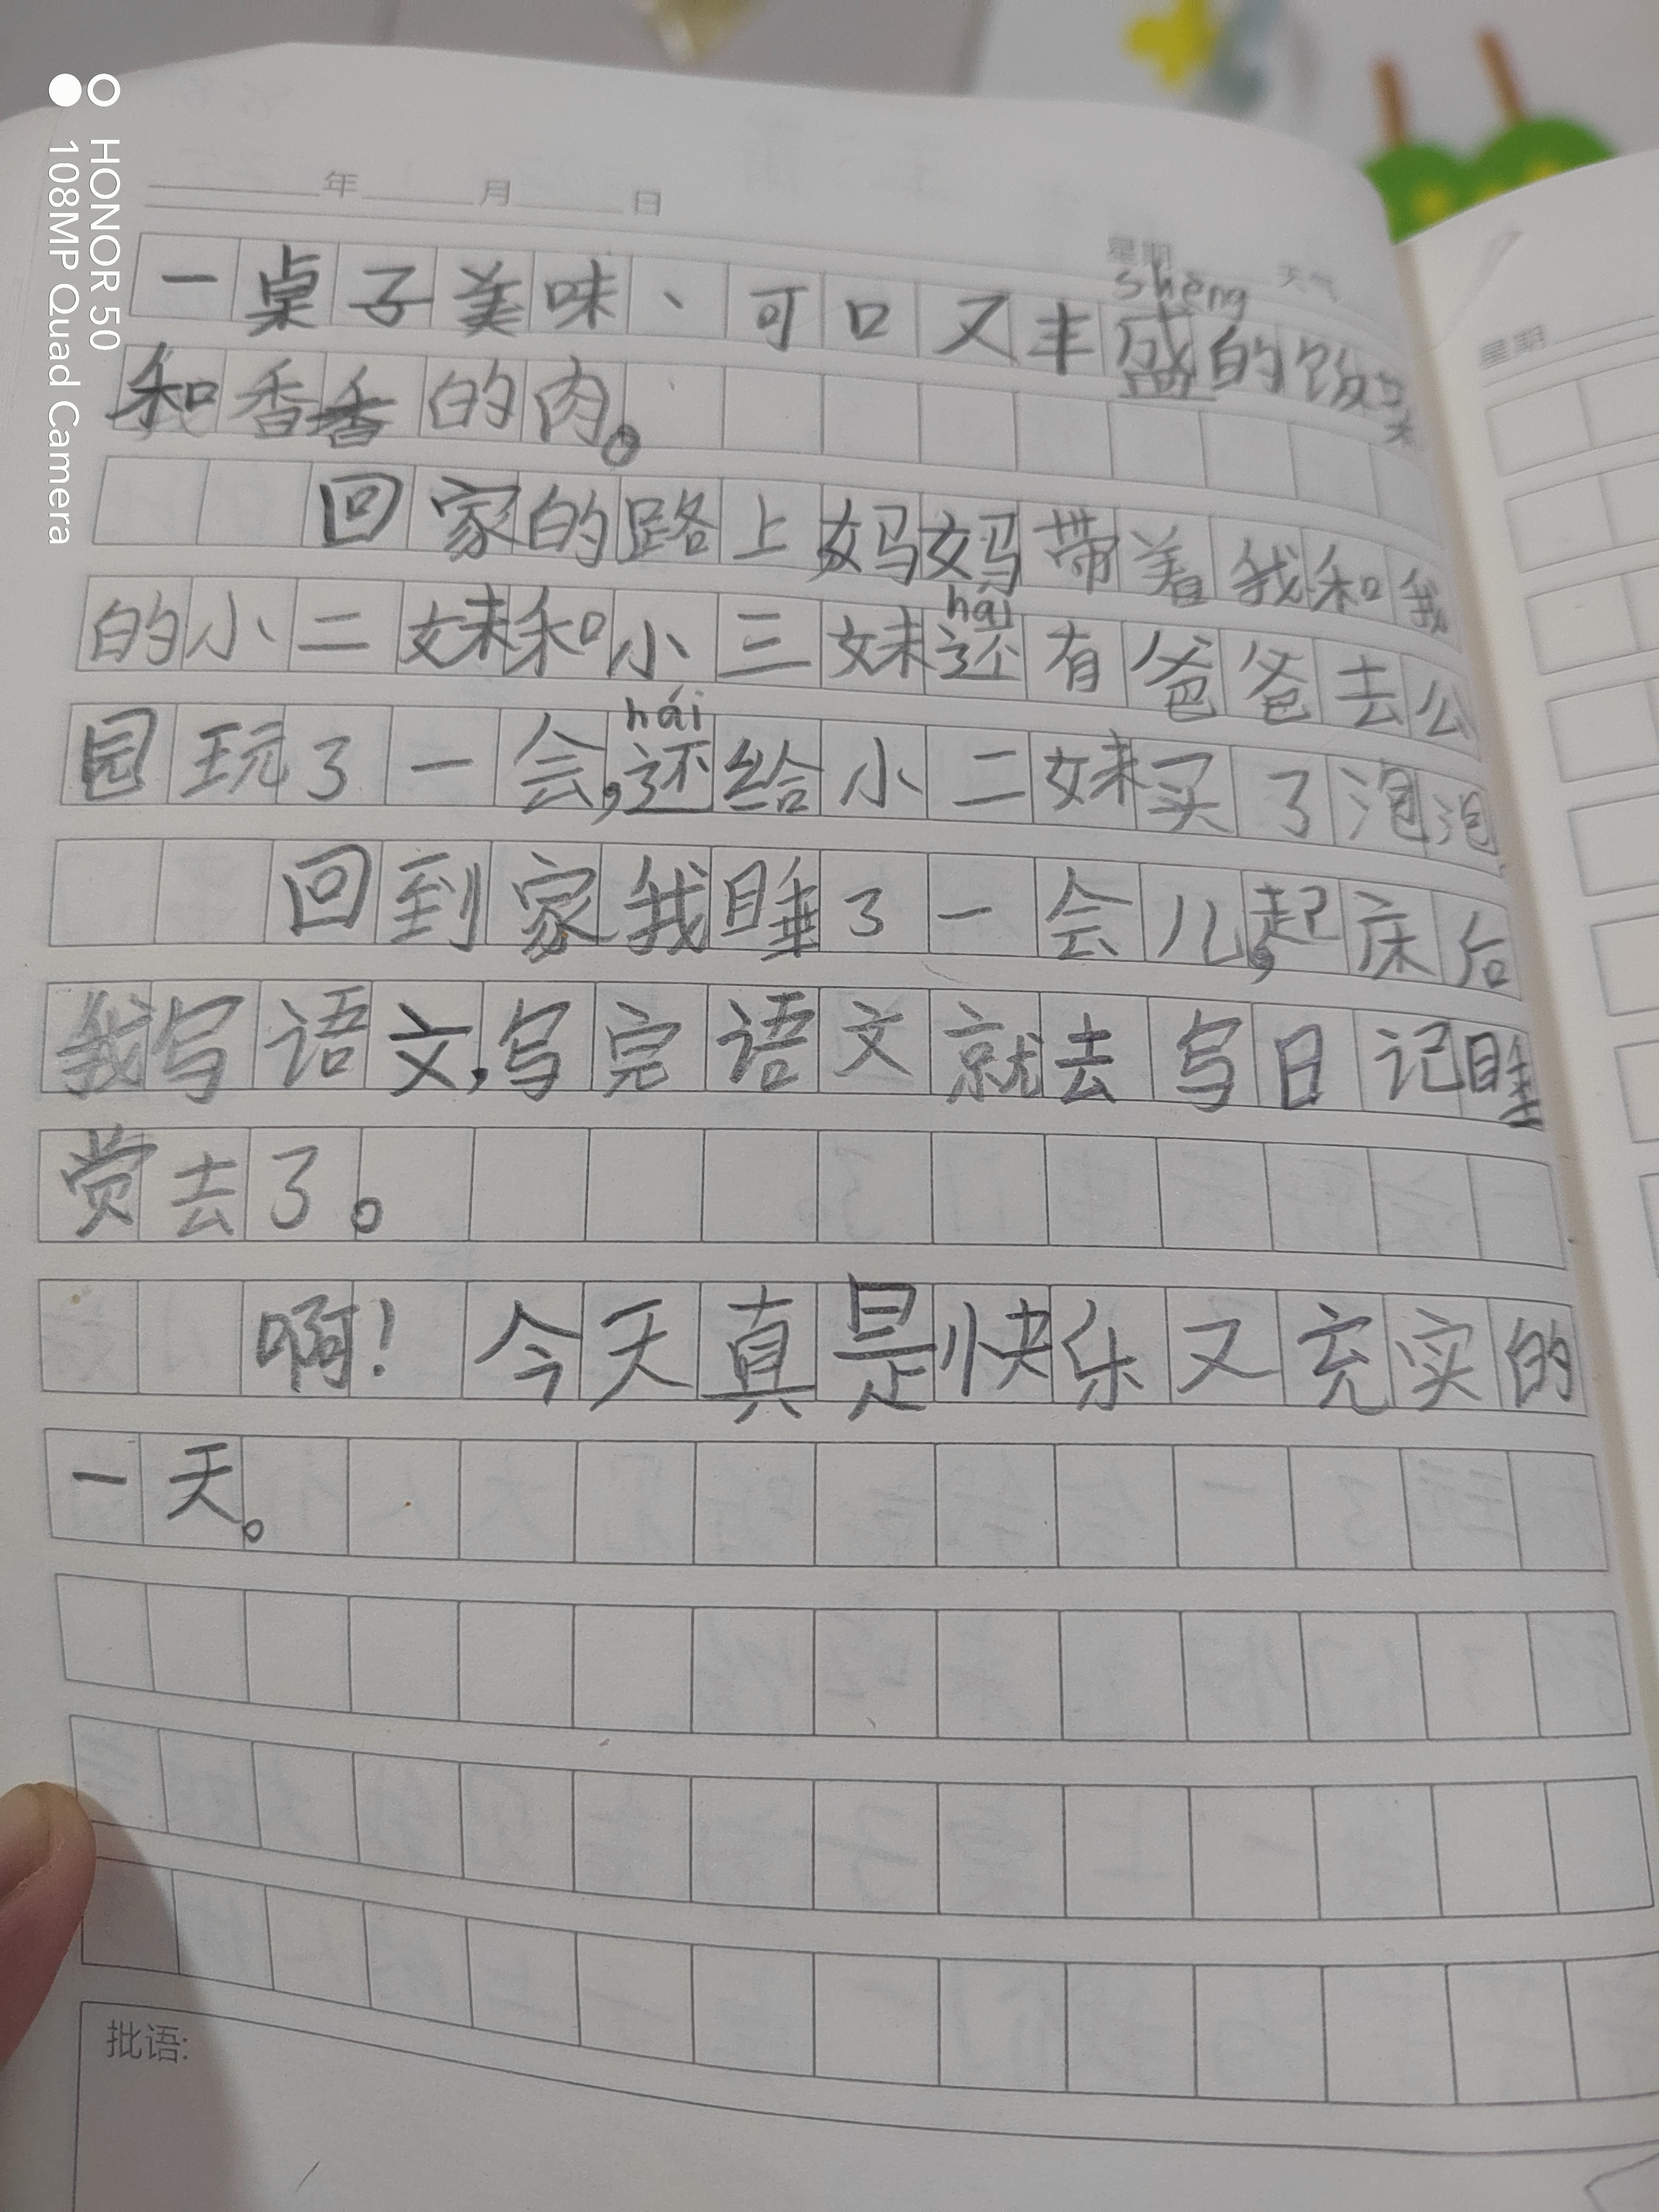 HONOR 50
108MP Quad Camera
年 月 日
星期 天气
shèng
一桌子美味、可口又丰盛的饭菜
和香香的肉。
回家的路上妈妈带着我和我
hái
的小二妹和小三妹还有爸爸去公
hái
园玩了一会,还给小二妹买了泡泡
回到家我睡了一会儿,起床后
我写语文,写完语文就去写日记睡
觉去了。
啊!今天真是快乐又充实的
一天。
批语:
星期